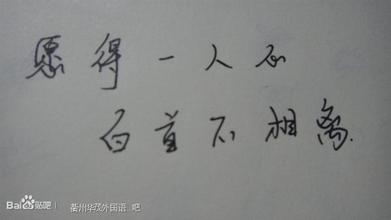 愿得一人心
白首不相离.
Bai贴吧
衢州华茂外国语..吧